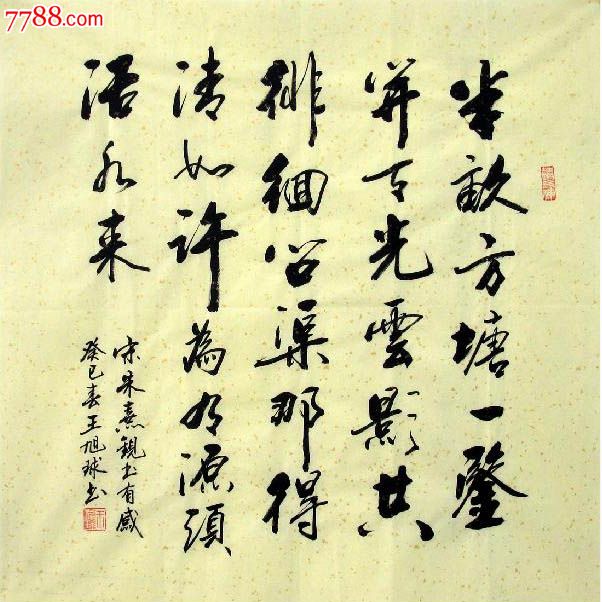 7788.com
半畝方塘一鑒
開天光雲影共
徘徊問渠那得
清如許為有源頭
活水來
宋朱熹觀書有感
癸巳春王旭球書